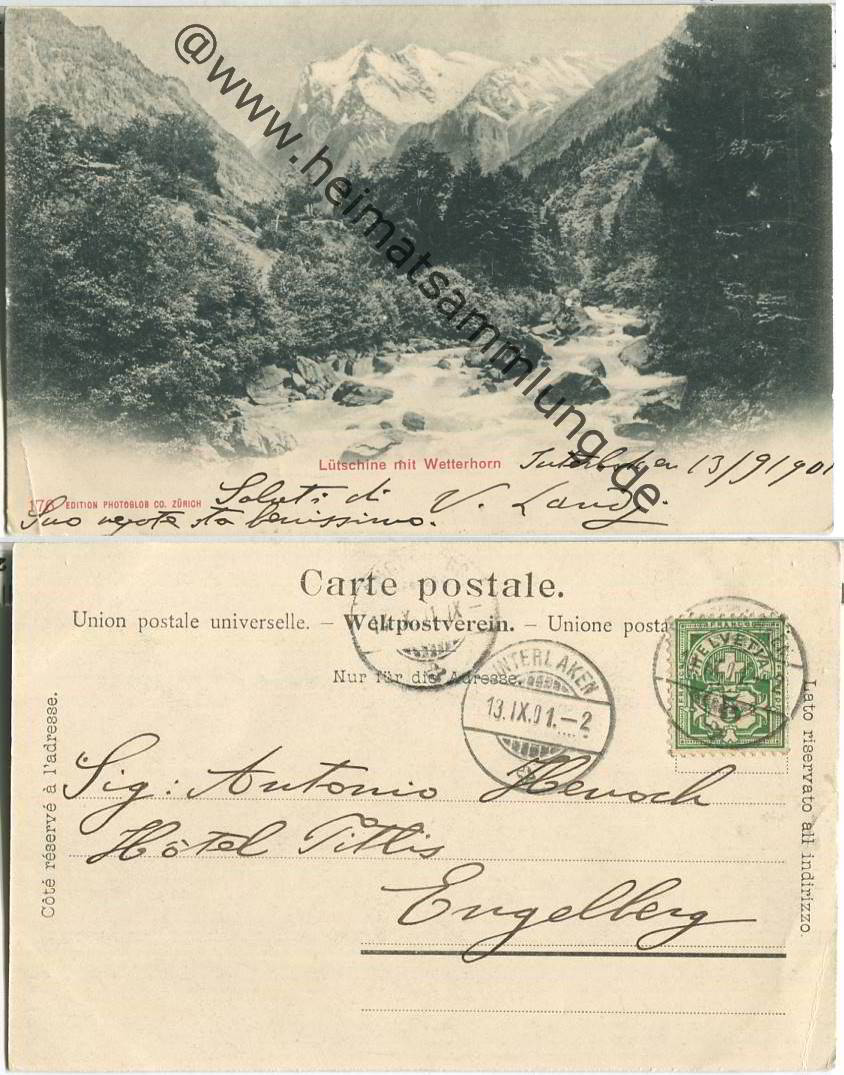 @www.heimatsammlung.de
Lütschine mit Wetterhorn
Interlaken 13/9/901
176 EDITION PHOTOGLOB CO. ZÜRICH
Saluti di
Suo nepote sta benissimo.
Carte postale.
Union postale universelle. – Weltpostverein. – Unione posta
Nur für die Adresse.
FRANCO
HELVETIA
5
INTERLAKEN
13.IX.01.–2
Côté réservé à l'adresse.
Lato riservato all indirizzo.
Sig: Antonio Henoch
Hôtel Titlis
Engelberg